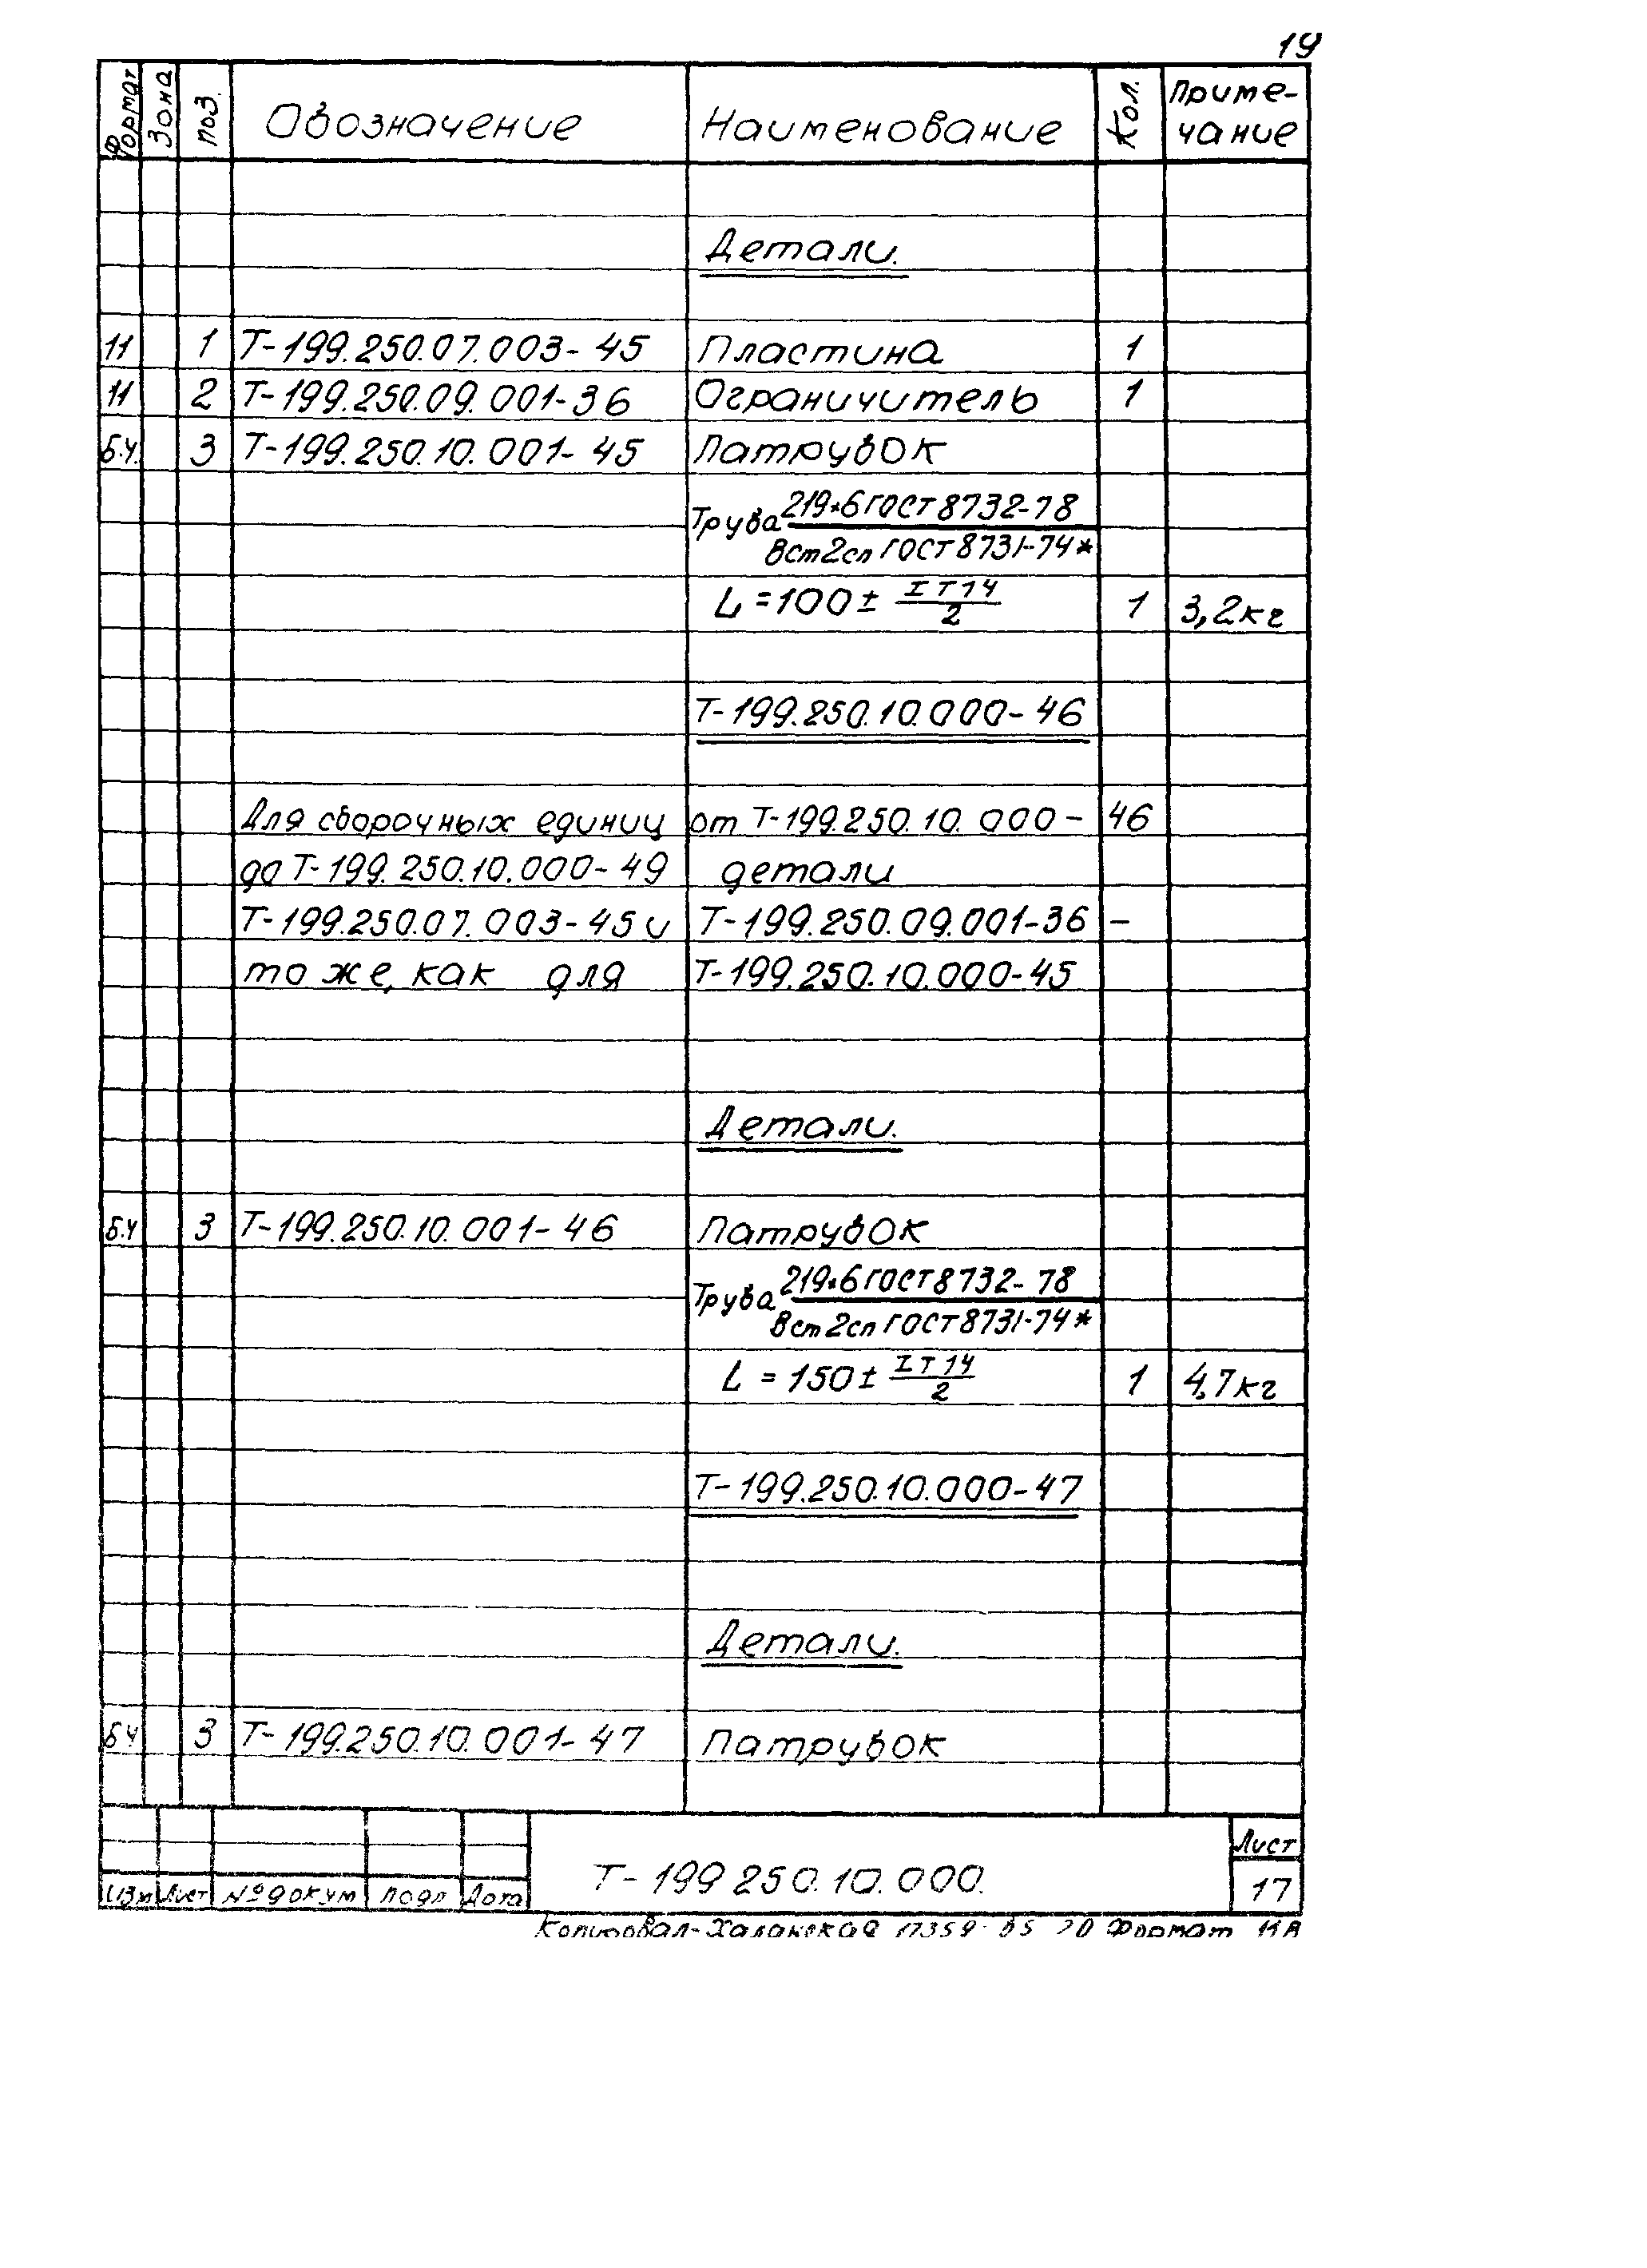 19
Формат Зона Поз. Обозначение Наименование Кол. Приме-
чание
Детали.
11 1 Т-199.250.07.003-45 Пластина 1
11 2 Т-199.250.09.001-36 Ограничитель 1
Б.Ч. 3 Т-199.250.10.001-45 Патрубок
Труба 219×6 ГОСТ 8732-78
Вст2сп ГОСТ 8731-74*
L=100± IT14/2 1 3,2кг
Т-199.250.10.000-46
Для сборочных единиц от Т-199.250.10.000-46
до Т-199.250.10.000-49 детали
Т-199.250.07.003-45 и Т-199.250.09.001-36 –
то же, как для Т-199.250.10.000-45
Детали.
Б.Ч 3 Т-199.250.10.001-46 Патрубок
Труба 219×6 ГОСТ 8732-78
Вст2сп ГОСТ 8731-74*
L=150± IT14/2 1 4,7кг
Т-199.250.10.000-47
Детали.
БЧ 3 Т-199.250.10.001-47 Патрубок
Изм Лист № докум Подп Дата
Т-199 250.10.000.
Лист
17
Копировал- 17359-05 20 Формат 11А